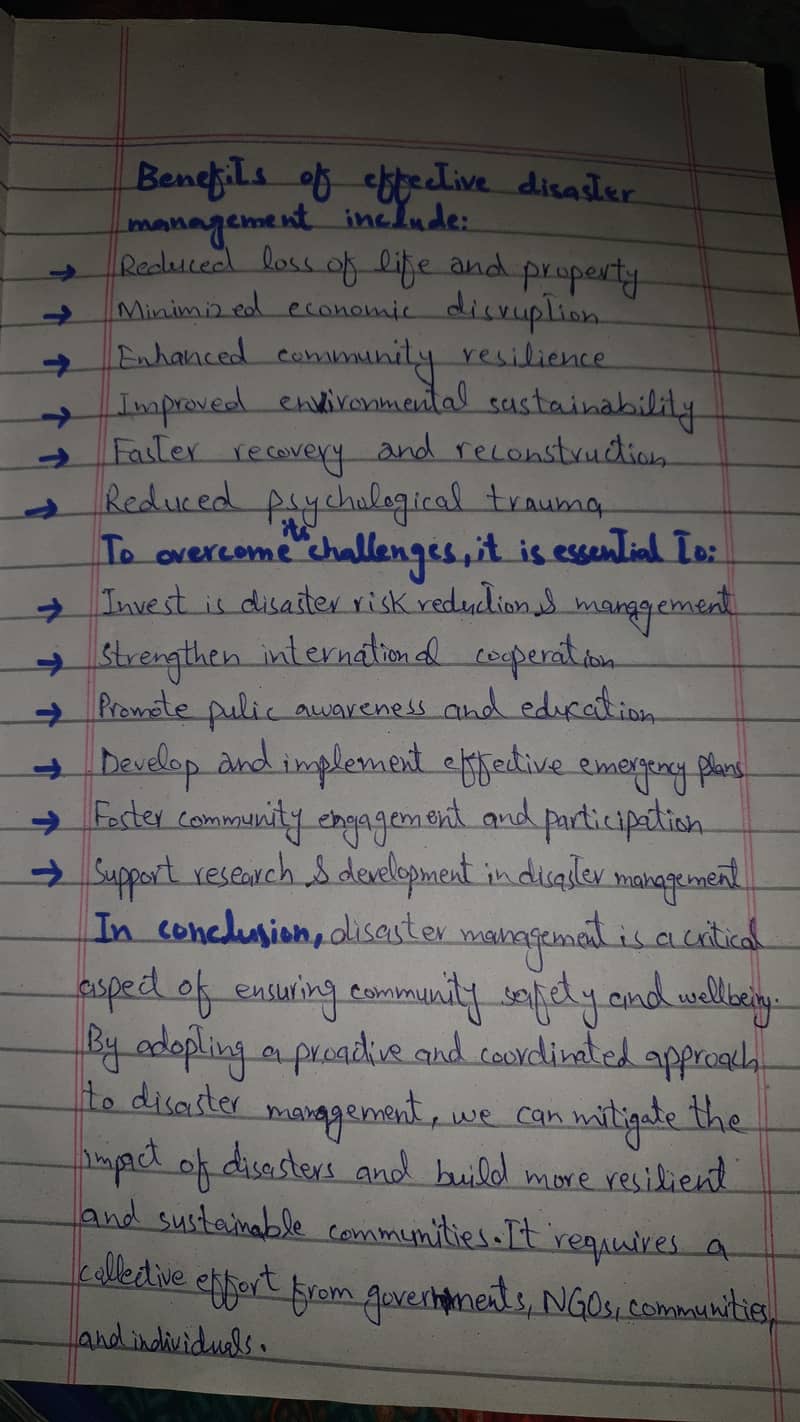 Benefits of effective disaster
management include:
→ Reduced loss of life and property
→ Minimized economic disruption
→ Enhanced community resilience
→ Improved environmental sustainability
→ Faster recovery and reconstruction
→ Reduced psychological trauma
To overcome its challenges, it is essential to:
→ Invest is disaster risk reduction & management
→ Strengthen international cooperation
→ Promote pulic awareness and education
→ Develop and implement effective emergency plans
→ Foster community engagement and participation
→ Support research & development in disaster management
In conclusion, disaster management is a critical
aspect of ensuring community safety and wellbeing.
By adopting a proactive and coordinated approach
to disaster management, we can mitigate the
impact of disasters and build more resilient
and sustainable communities. It requires a
collective effort from governments, NGOs, communities,
and individuals.